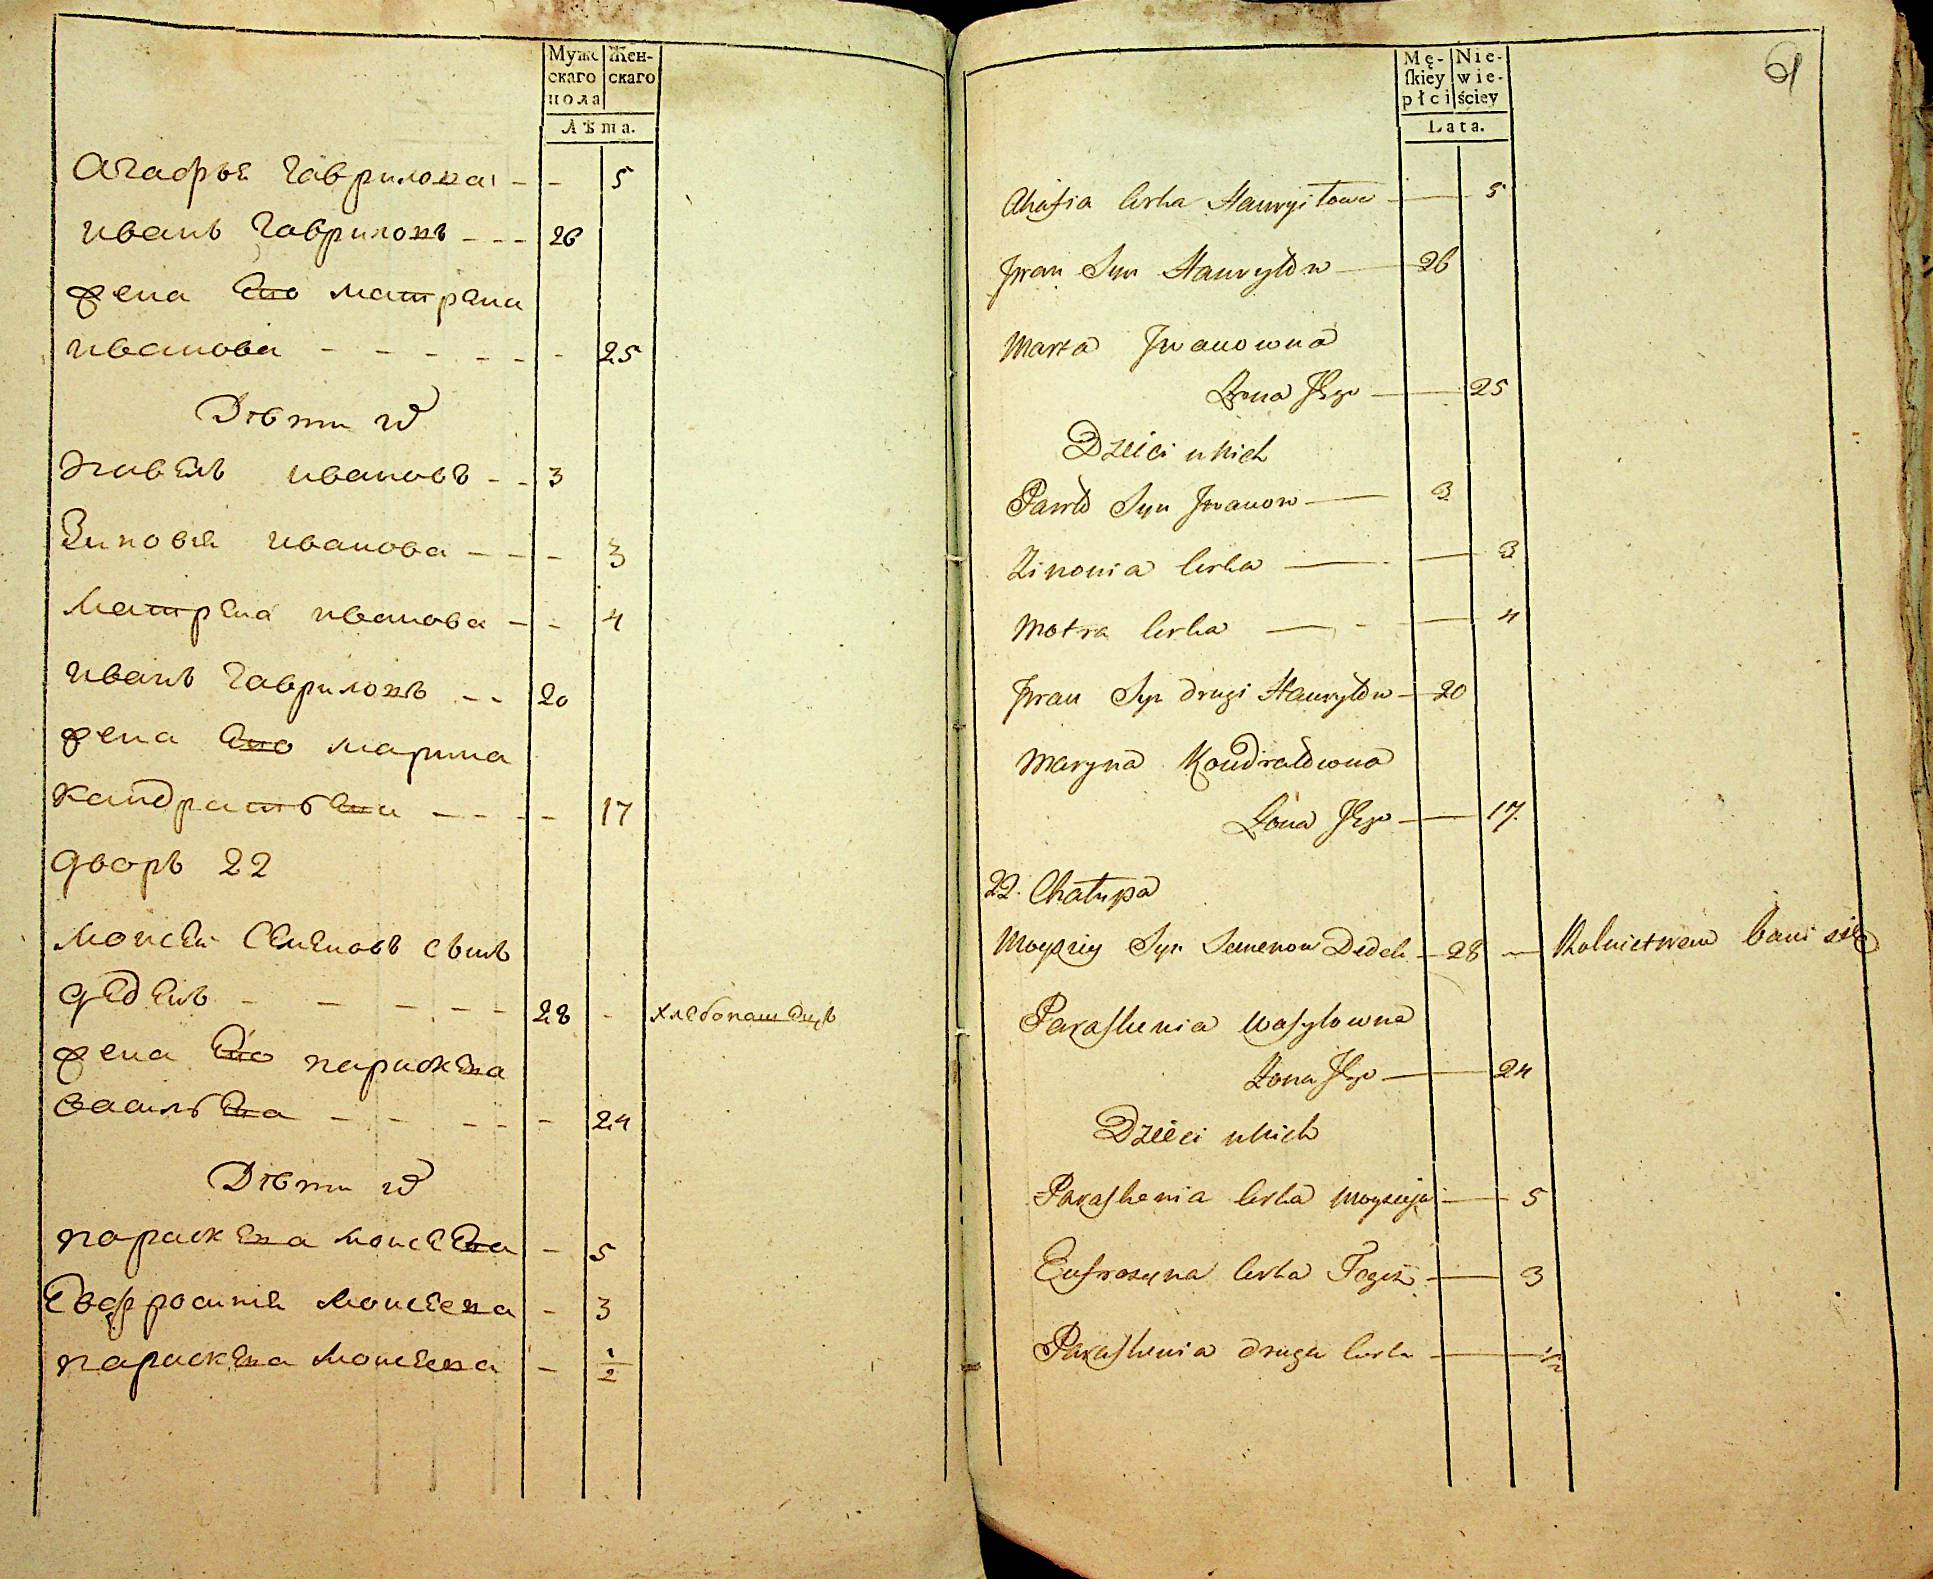 Мужс Жен-
скаго скаго
пола
Лѣта.
Агафья Гаврилова - - 5
Иванъ Гавриловъ - - - 26
жена Его Матрена
Иванова - - - - - - 25
Дѣти их
Павелъ Ивановъ - - 3
Зиновья Иванова - - - 3
Матрена Иванова - - 4
Иванъ Гавриловъ - - 20
жена Его Марина
Кандратьева - - - - 17
дворъ 22
Моисей Семеновъ сынъ
Деделъ - - - - - 28 - хлебопашецъ
жена Его параскева
Васильева - - - - - 24
Дѣти их
параскева Моисеева - 5
Евфросинья Моисеева - 3
параскева Моисеева - 1/2
Mę- Nie-
skiey wie-
płci ściey
Lata.
61
Ahafia Corka Hawryłowa — 5
Jwan Syn Hawryłow — 26
Marta Jwanowna
Żona Jego — 25
Dzieci u Nich
Paweł Syn Jwanow — 3
Zinowia Corka — 3
Motra Corka — 4
Jwan Syn drugi Hawryłow — 20
Maryna Kondratowna
Żona Jego — 17.
22. Chałupa
Moyziey Syn Semenow Dedel — 28 — Rolnictwem bawi się
Paraskewia Wasylowna
Żona Jego — 24
Dzieci u Nich
Paraskewia Corka Moyzieja — 5
Eufrozyna Corka Tegoż — 3
Paraskewia druga Corka — 1/2